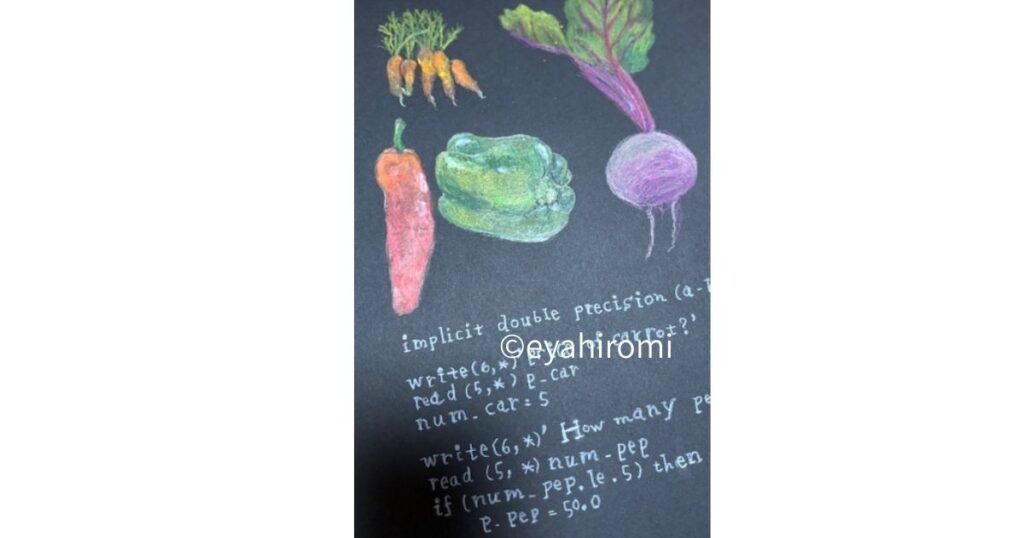 implicit double precision (a-
©eyahiromi
write(6,*) of carrot?'
read (5,*) p_car
num_car=5
write(6,*)' How many pe
read (5, *) num_pep
if (num_pep.le.5) then
p_pep = 50.0